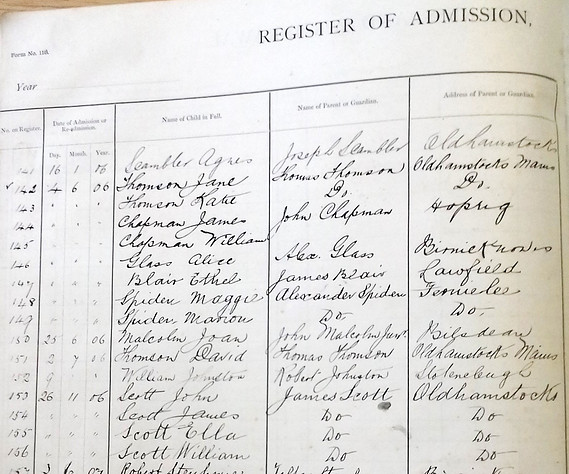 REGISTER OF ADMISSION,
Form No. 118.
Year
No. on Register. Date of Admission or Re-admission. Name of Child in Full. Name of Parent or Guardian. Address of Parent or Guardian.
Day. Month. Year.
141 16 1 06 Scambler Agnes Joseph Scambler Oldhamstocks
142 4 6 06 Thomson Jane Thomas Thomson Oldhamstocks Mains
143 " " " Thomson Katie Do. Do.
144 " " " Chapman James John Chapman Hoprig
145 " " " Chapman William
146 " " " Glass Alice Alex. Glass Birnieknowes
147 " " " Blair Ethel James Blair Lawfield
148 " " " Spiden Maggie Alexander Spiden Ferneles
149 " " " Spiden Marion Do. Do.
150 25 6 06 Malcolm Joan John Malcolm Junr. Bilsdean
151 2 7 06 Thomson David Thomas Thomson Oldhamstocks Mains
152 9 " " William Johnston Robert Johnston
153 26 11 06 Scott John James Scott Oldhamstocks
154 " " " Scott James Do Do
155 " " " Scott Ella Do Do
156 " " " Scott William Do Do
Robert